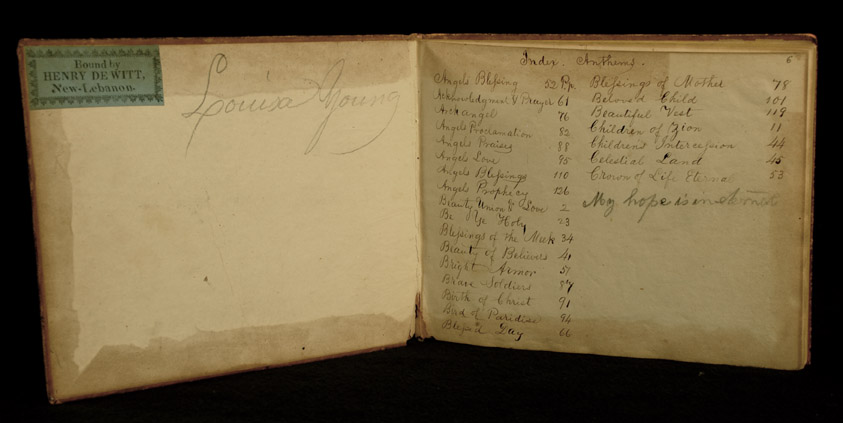 Bound by
HENRY DE WITT,
New-Lebanon.
Louisa Young
Index. Anthems.
6
Angels Blessing 52 Pp.
Acknowledgment & Prayer 61
Archangel 76
Angels Proclamation 82
Angels Praises 88
Angels Love 95
Angels Blessings 110
Angels Prophecy 126
Beauty Union & Love 2
Be Ye Holy 23
Blessings of the Meek 34
Beauty of Believers 41
Bright Armor 51
Brave Soldiers 87
Birth of Christ 91
Bird of Paridise 94
Blessed Day 66
Blessings of Mother 78
Beloved Child 101
Beautiful Vest 119
Children of Zion 11
Childrens Intercession 44
Celestial Land 45
Crown of Life Eternal 53
My hope is in